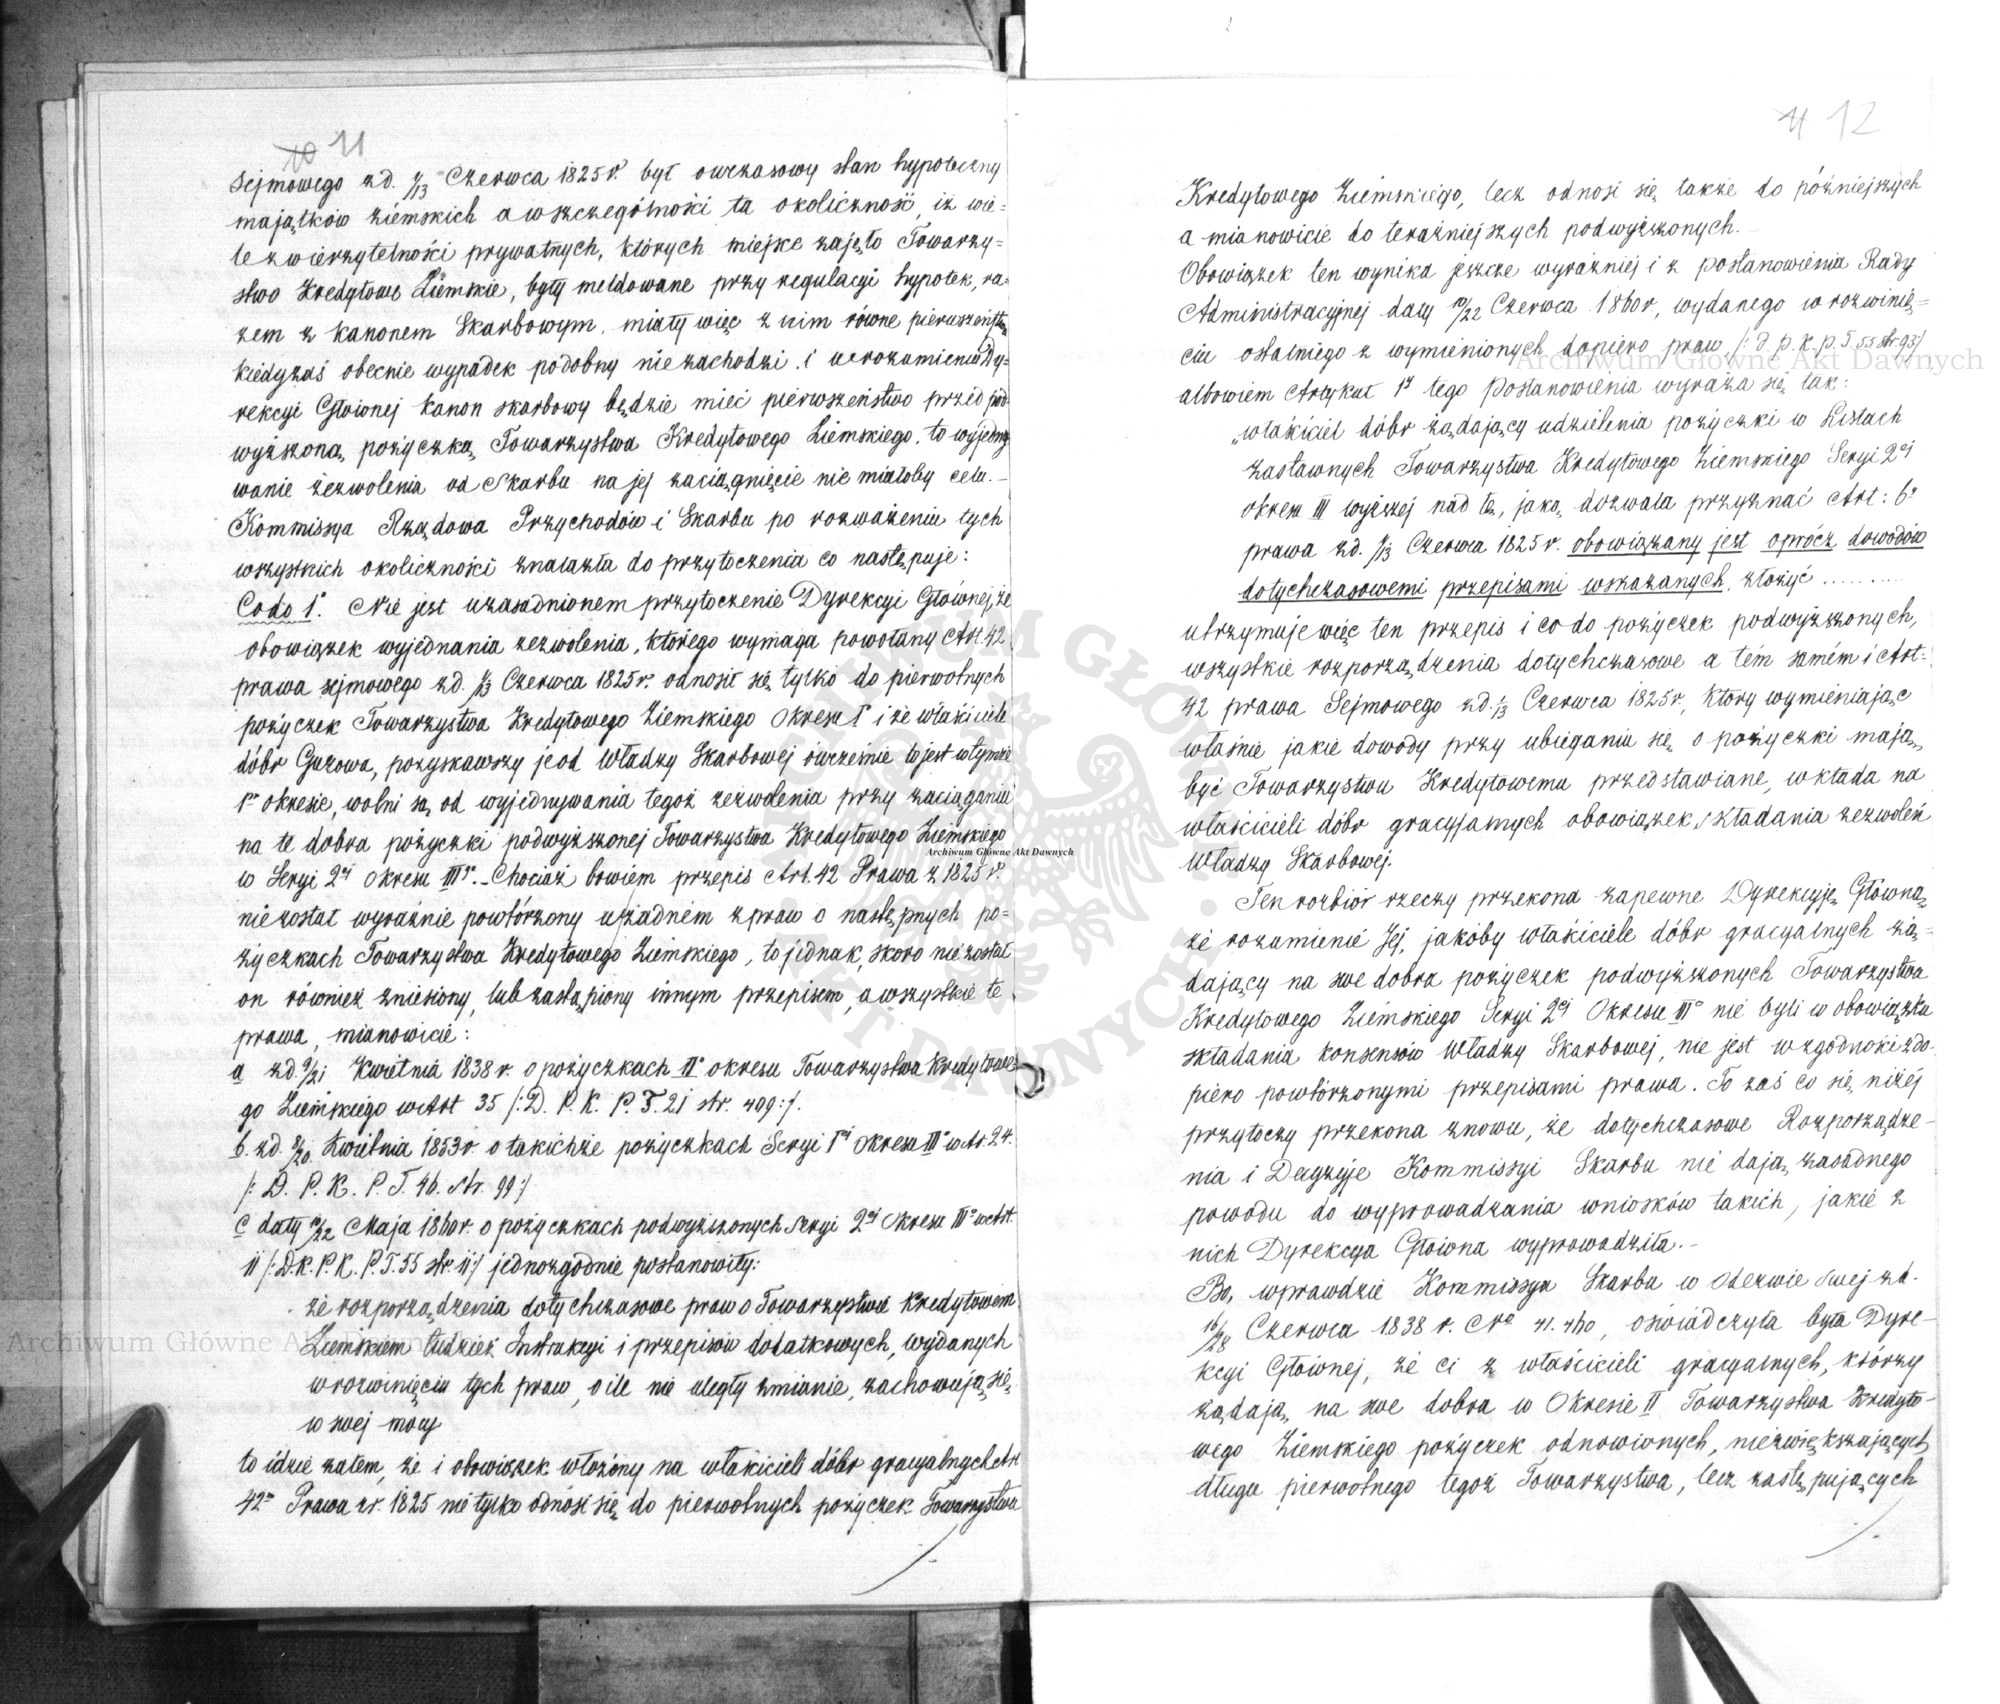 11
Sejmowego z d. 1/13 Czerwca 1825 r. był owczasowy stan hypoteczny
majątków ziemskich a w szczególności ta okoliczność, iż wie=
le zwierzytelności prywatnych, których miejsce zajęło Towarzy=
stwo Kredytowe Ziemskie, były meldowane przy regulacyi hypotek, ra=
zem z kanonem Skarbowym, miały więc z nim równe pierwszeństwo
kiedy zaś obecnie wypadek podobny nie zachodzi, i w rozumieniu Dy=
rekcyi Głównej kanon skarbowy będzie mieć pierwszeństwo przed pod
wyższoną pożyczką Towarzystwa Kredytowego Ziemskiego, to wyjedny
wanie zezwolenia od Skarbu na jej zaciągnięcie nie miałoby celu.-
Kommissya Rządowa Przychodów i Skarbu po rozważeniu tych
wszystkich okoliczności znalazła do przytoczenia co następuje:
Co do 1°. Nie jest uzasadnionem przytoczenie Dyrekcyi Głównej, że
obowiązek wyjednania zezwolenia, którego wymaga powołany Art. 42
prawa sejmowego z d. 1/13 Czerwca 1825 r. odnosił się tylko do pierwotnych
pożyczek Towarzystwa Kredytowego Ziemskiego Okresu I° i że właściciele
dóbr Guzowa, pozyskawszy je od Władzy Skarbowej ówcześnie to jest w tymże
1m okresie, wolni są od wyjednywania tegoż zezwolenia przy zaciąganiu
na te dobra pożyczki podwyższonej Towarzystwa Kredytowego Ziemskiego
w Seryi 2ej okresu III°.- Chociaż bowiem przepis Art. 42 Prawa z 1825 r.
nie został wyraźnie powtórzony w żadnem z praw o następnych po=
życzkach Towarzystwa Kredytowego Ziemskiego, to jednak, skoro nie został
on również zniesiony, lub zastąpiony innym przepisem, a wszystkie te
prawa, mianowicie:
a z d. 9/21 Kwietnia 1838 r. o pożyczkach II° okresu Towarzystwa Kredytowe
go Ziemskiego w Art 35 /: D. P. K. P. T. 21 str. 409 :/.
b. z d. 8/20. Kwietnia 1853 r. o takichże pożyczkach Seryi 1ej okresu III° w Ar. 24.
/: D. P. K. P. T. 46. str. 99 :/
c daty 10/22 Maja 1860 r. o pożyczkach podwyższonych Seryi 2ej Okresu III° w Art.
11 /: D.K.P.K.P.T. 55 str. 11 :/ jednozgodnie postanowiły:
że rozporządzenia dotychczasowe praw o Towarzystwie Kredytowem
Ziemskiem tudzież Instrukcyi i przepisów dodatkowych, wydanych
w rozwinięciu tych praw, o ile nie uległy zmianie, zachowują się
w swej mocy
to idzie zatem, że i obowiązek włożony na właścicieli dóbr gracyalnych Art
42m Prawa z r. 1825 nie tylko odnosi się do pierwotnych pożyczek Towarzystwa
12
Kredytowego Ziemskiego, lecz odnosi się także do późniejszych
a mianowicie do teraźniejszych podwyższonych.-
Obowiązek ten wynika jeszcze wyraźniej i z postanowienia Rady
Administracyjnej daty 10/22 Czerwca 1860 r, wydanego w rozwinię=
ciu ostatniego z wymienionych dopiero praw, /: d. p. k. p. T. 55 str. 93 :/
albowiem Artykuł 1y tego postanowienia wyraża się tak:
„właściciel dóbr żądający udzielenia pożyczki w Listach
zastawnych Towarzystwa Kredytowego Ziemskiego Seryi 2ej
okresu III wyższej nad tę, jaką dozwala przyznać Art: 6y
prawa z d. 1/13 Czerwca 1825 r. obowiązany jest oprócz dowodów
dotychczasowemi przepisami wskazanych, złożyć .........
utrzymuje więc ten przepis i co do pożyczek podwyższonych,
wszystkie rozporządzenia dotychczasowe a tém samém i Art:
42 prawa Sejmowego z d. 1/13 Czerwca 1825 r, który wymieniając
właśnie jakie dowody przy ubieganiu się o pożyczki mają
być Towarzystwu Kredytowemu przedstawiane, wkłada na
właścicieli dóbr gracyjalnych obowiązek składania zezwoleń
Władzy Skarbowej.
Ten rozbiór rzeczy przekona zapewne Dyrekcyję Główną,
że rozumienie Jej, jakoby właściciele dóbr gracyalnych żą=
dający na swe dobra pożyczek podwyższonych Towarzystwa
Kredytowego Ziemskiego Seryi 2ej Okresu III° nie byli w obowiązku
składania konsensów Władzy Skarbowej, nie jest w zgodności z do-
piero powtórzonymi przepisami prawa. To zaś co się niżej
przytoczy przekona znowu, że dotychczasowe Rozporządze-
nia i Decyzyje Kommissyi Skarbu nie dają zasadnego
powodu do wyprowadzania wniosków takich, jakie z
nich Dyrekcya Główna wyprowadziła.-
Bo, wprawdzie Kommissya Skarbu w odezwie swej z d.
16/28 Czerwca 1838 r. Nro 41.460, oświadczyła była Dyre-
kcyi Głównej, że ci z właścicieli gracyalnych, którzy
żądają na swe dobra w Okresie II Towarzystwa Kredyto-
wego Ziemskiego pożyczek odnowionych, niezwiększających
długu pierwotnego tegoż Towarzystwa, lecz zastępujących
Archiwum Główne Akt Dawnych
Archiwum Główne Akt Dawnych
Archiwum Główne Akt Dawnych